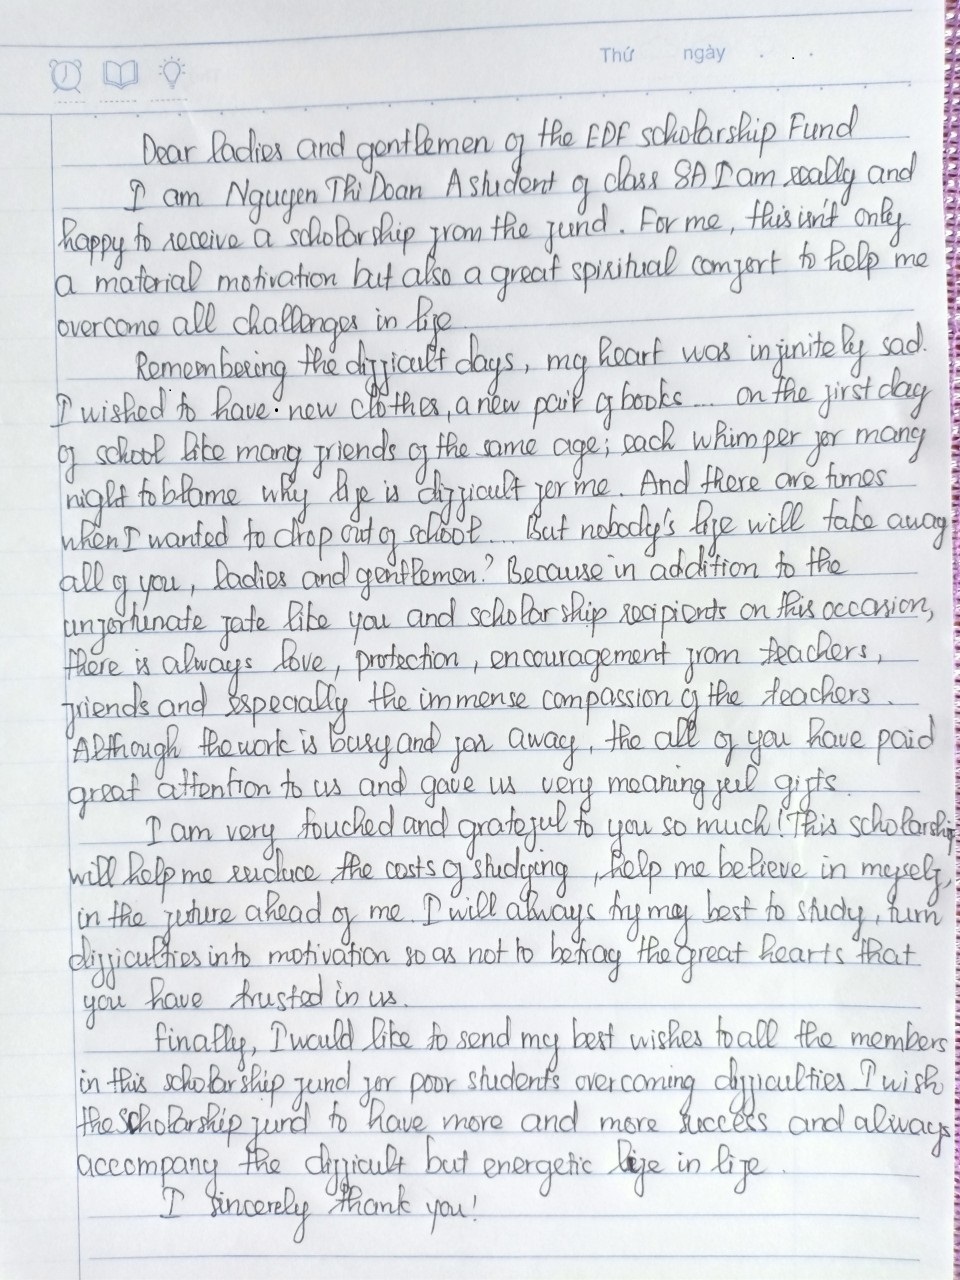 Thứ ngày
Dear ladies and gentlemen of the EDF scholarship Fund
I am Nguyen Thi Doan A student of class 8A I am really and
happy to receive a scholarship from the fund. For me, this isn't only
a material motivation but also a great spiritual comfort to help me
overcome all challenges in life
Remembering the difficult days, my heart was infinitely sad.
I wished to have new clothes, a new pair of books... on the first day
of school like many friends of the same age; each whimper for many
night to blame why life is difficult for me. And there are times
when I wanted to drop out of school... But nobody's life will take away
all of you, ladies and gentlemen? Because in addition to the
unfortunate fate like you and scholarship recipients on this occasion,
there is always love, protection, encouragement from teachers,
friends and especially the immense compassion of the teachers.
Although the work is busy and far away, the all of you have paid
great attention to us and gave us very meaning ful gifts.
I am very touched and grateful to you so much! This scholarship
will help me reduce the costs of studying, help me believe in myself,
in the future ahead of me. I will always try my best to study, turn
difficulties into motivation so as not to betray the great hearts that
you have trusted in us.
Finally, I would like to send my best wishes to all the members
in this scholarship fund for poor students overcoming difficulties I wish
the scholarship fund to have more and more success and always
accompany the difficult but energetic life in life.
I sincerely thank you!